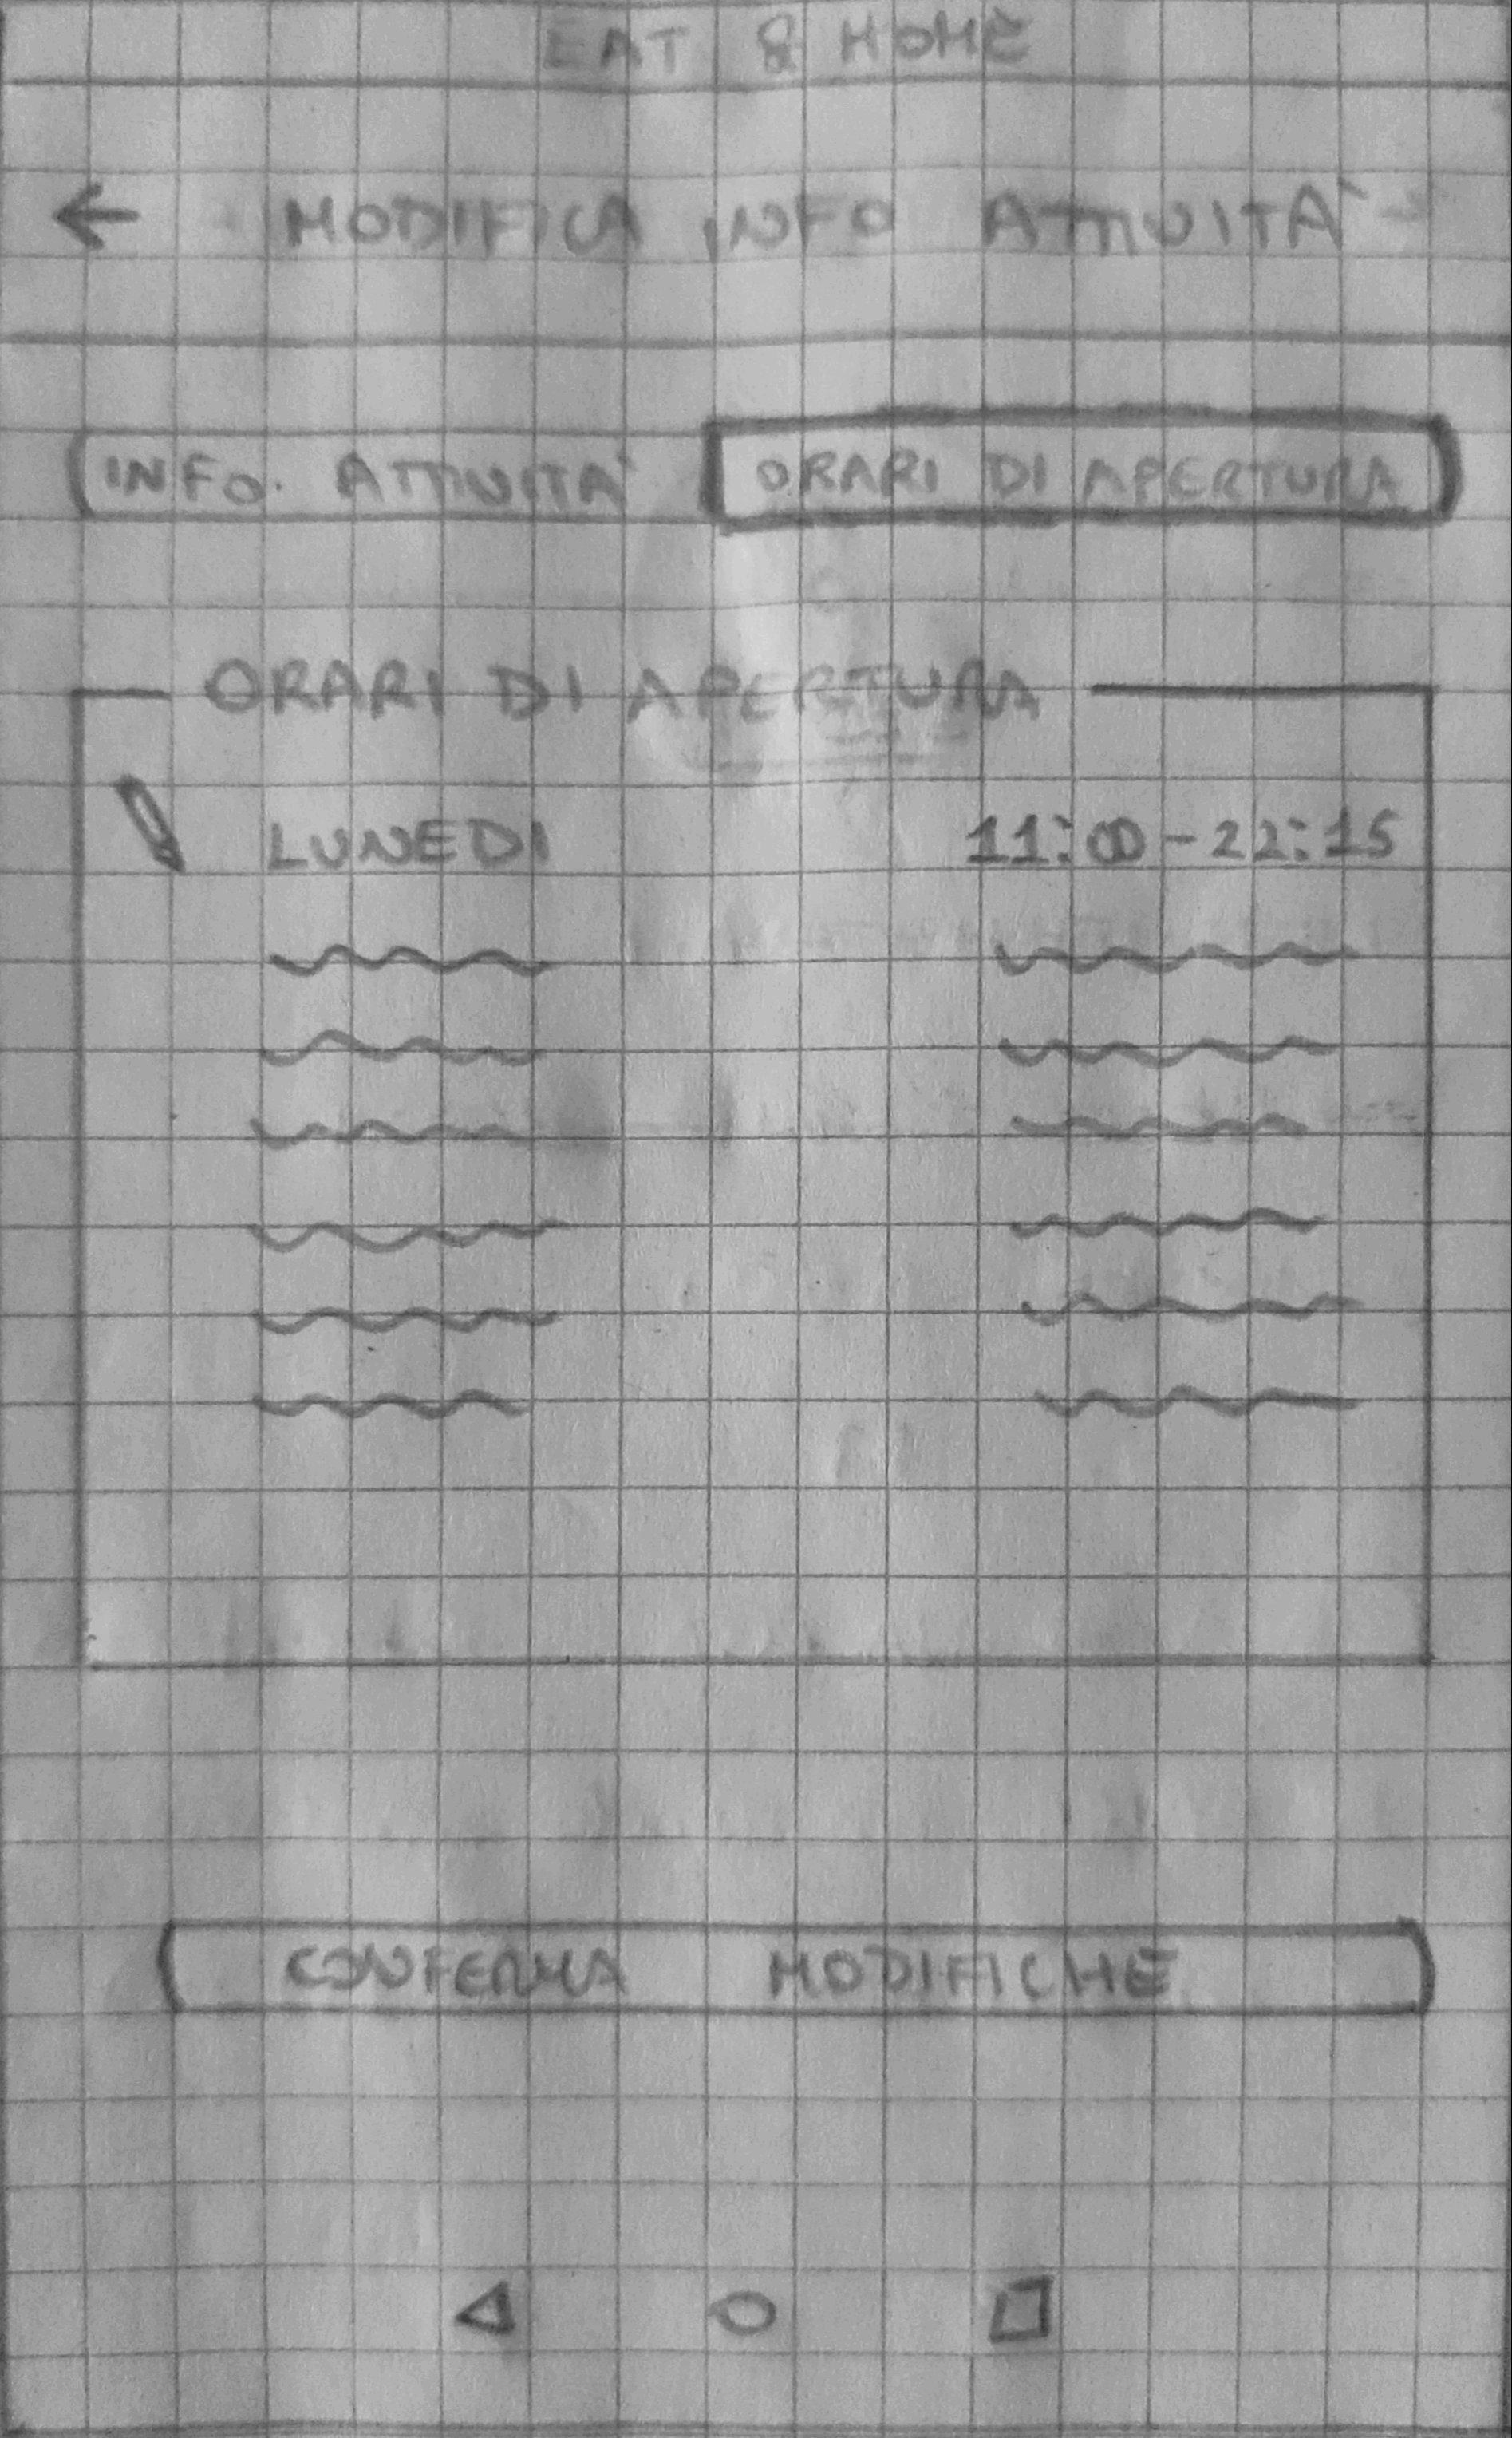 EAT & HOME
MODIFICA INFO ATTIVITÀ
INFO. ATTIVITÀ
ORARI DI APERTURA
ORARI DI APERTURA
LUNEDI
11:00-22:15
CONFERMA MODIFICHE